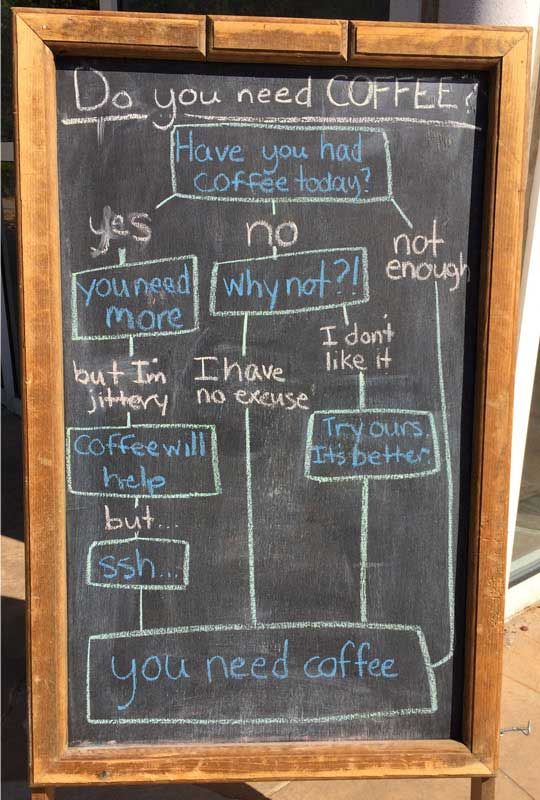 Do you need COFFEE?
Have you had
coffee today?
yes
no
not
enough
you need
more
why not?!
but I'm
jittery
I have
no excuse
I don't
like it
Coffee will
help
Try ours.
Its better.
but...
ssh...
you need coffee